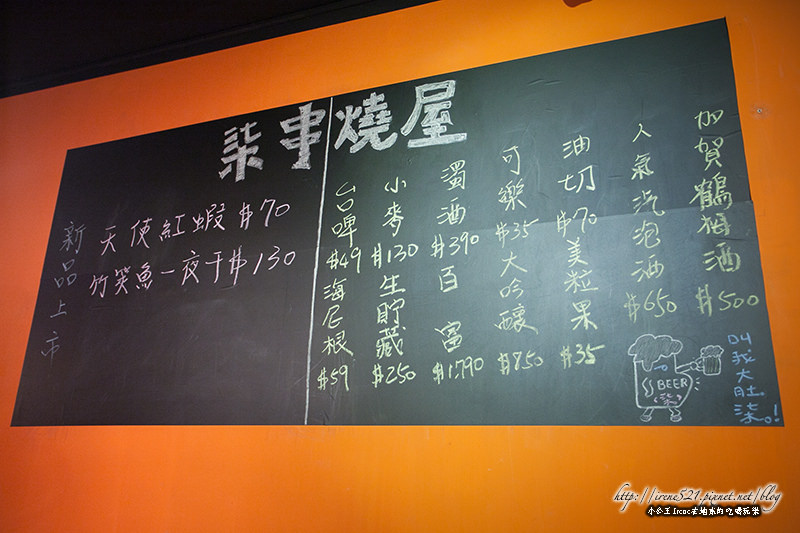 柒串燒屋
新品上市
天使紅蝦 $70
竹筴魚一夜干 $130
加賀鶴梅酒 $500
人氣汽泡酒 $650
油切 $70 美粒果 $35
可樂 $35 大吟釀 $850
濁酒 $390 百富 $1790
小麥 $130 生貯藏 $250
台啤 $49 海尼根 $59
BEER
柒
叫我大肚柒!
http://irene521.pixnet.net/blog
小公主Irene在地球的吃喝玩樂